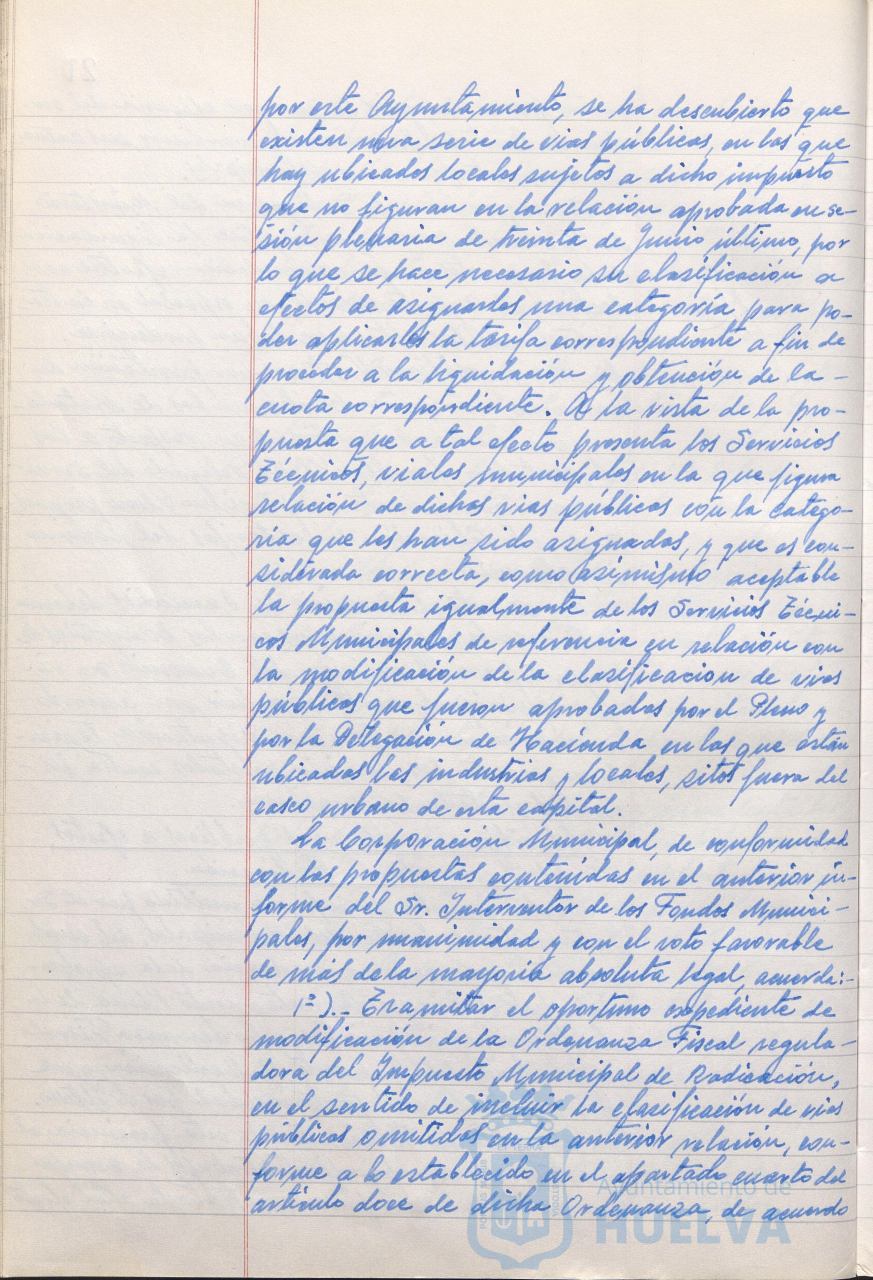 por este Ayuntamiento, se ha descubierto que
existen una serie de vias públicas, en las que
hay ubicados locales sujetos a dicho impuesto
que no figuran en la relación aprobada en se-
sión plenaria de treinta de Junio último, por
lo que se hace necesario su clasificación a
efectos de asignarles una categoría para po-
der aplicarles la tarifa correspondiente a fin de
proceder a la liquidación y obtención de la -
cuota correspondiente. A la vista de la pro-
puesta que a tal efecto presenta los Servicios
Técnicos, viales municipales en la que figura
relación de dichas vias públicas con la catego-
ría que les han sido asignadas, y que es con-
siderada correcta, como asimismo aceptable
la propuesta igualmente de los Servicios Técni-
cos Municipales de referencia en relación con
la modificación de la clasificacion de vias
públicas que fueron aprobadas por el Pleno y
por la Delegación de Hacienda en las que están
ubicadas las industrias y locales, sitos fuera del
casco urbano de esta capital.
La Corporación Municipal, de conformidad
con las propuestas contenidas en el anterior in-
forme del Sr. Interventor de los Fondos Munici-
pales, por unanimidad y con el voto favorable
de más de la mayoría absoluta legal, acuerda:-
1º).- Tramitar el oportuno expediente de
modificación de la Ordenanza Fiscal regula-
dora del Impuesto Municipal de Radicación,
en el sentido de incluir la clasificación de vias
públicas omitidas en la anterior relación, con-
forme a lo establecido en el apartado cuarto del
artículo doce de dicha Ordenanza, de acuerdo
Ayuntamiento de
HUELVA